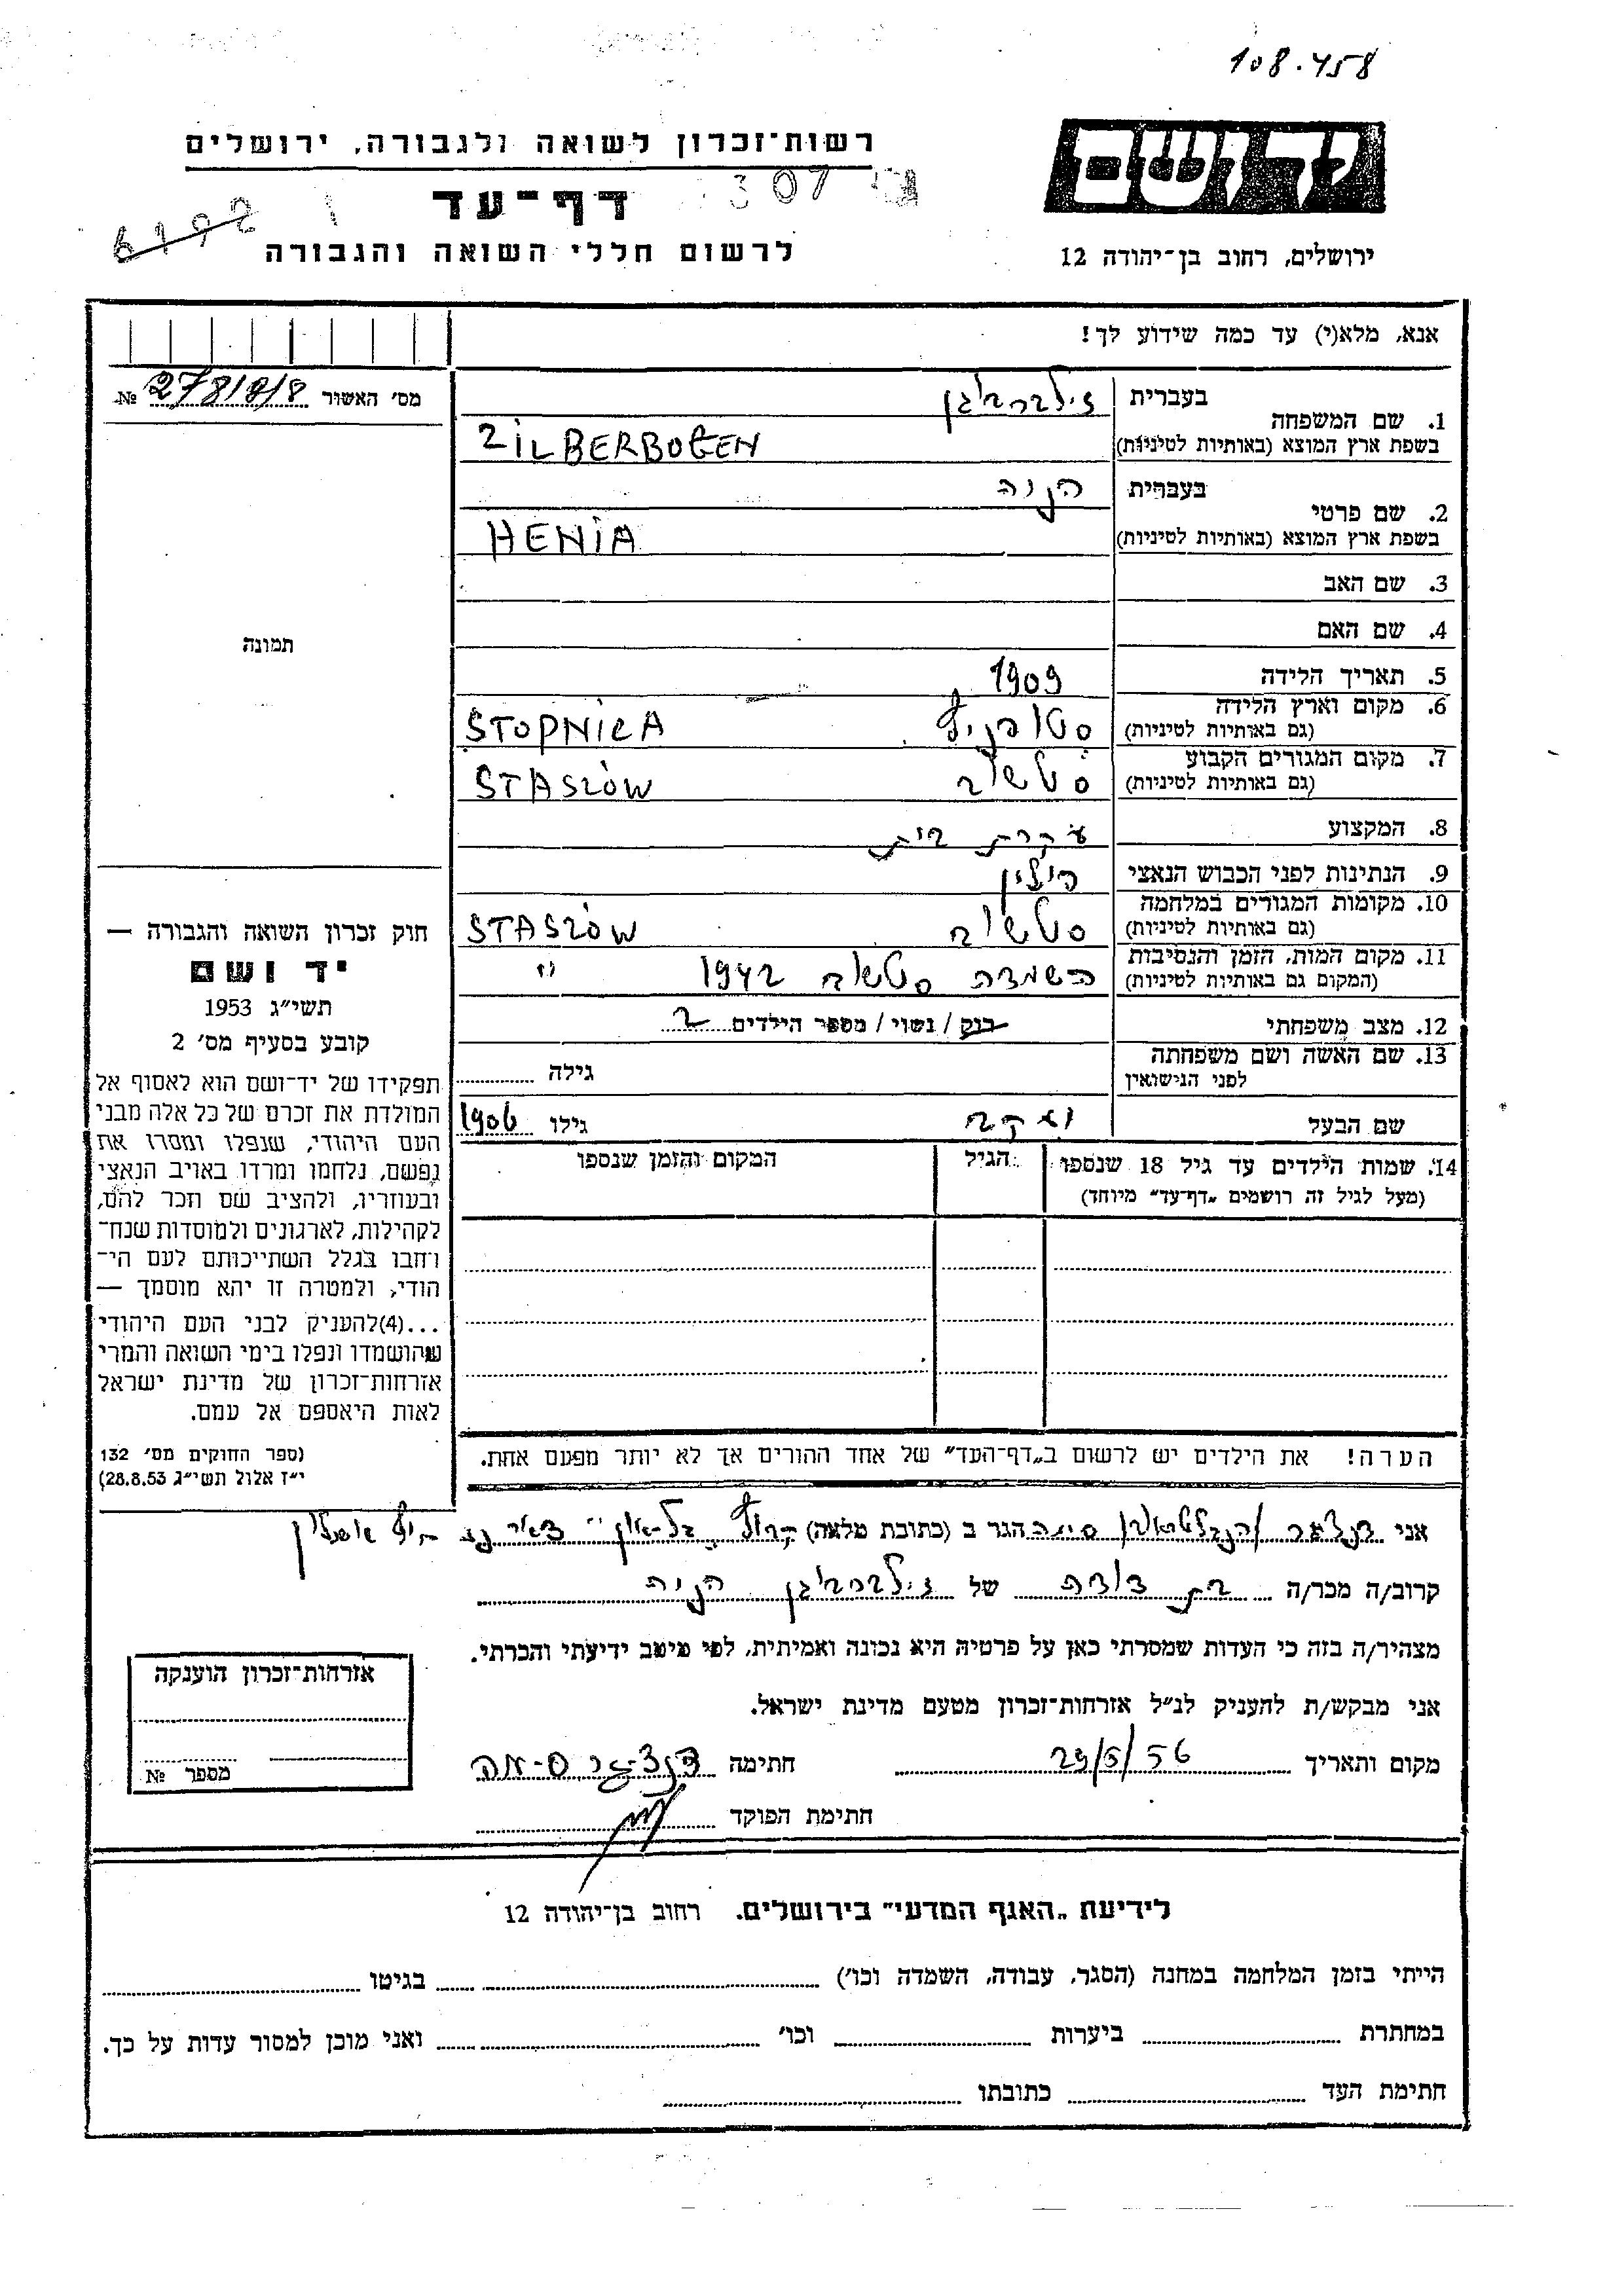 108.458
רשות־זכרון לשואה ולגבורה, ירושלים
יד ושם
307
דף־עד
6192
לרשום חללי השואה והגבורה
ירושלים, רחוב בן־יהודה 12
אנא, מלא(י) עד כמה שידוע לך!
מס׳ האשור № 2781818
בעברית זילברבוגן
1. שם המשפחה
בשפת ארץ המוצא (באותיות לטיניות) ZILBERBOGEN
בעברית הניה
2. שם פרטי
בשפת ארץ המוצא (באותיות לטיניות) HENIA
3. שם האב
4. שם האם
תמונה
5. תאריך הלידה 1909
6. מקום וארץ הלידה
(גם באותיות לטיניות) STOPNICA
7. מקום המגורים הקבוע
(גם באותיות לטיניות) סטשוב STASZÓW
8. המקצוע עקרת בית
9. הנתינות לפני הכבוש הנאצי פולין
10. מקומות המגורים במלחמה
(גם באותיות לטיניות) סטשוב STASZÓW
11. מקום המות, הזמן והנסיבות
(המקום גם באותיות לטיניות) השמדה סטשוב 1942 "
12. מצב משפחתי רווק / נשוי / מספר הילדים 2
13. שם האשה ושם משפחתה
לפני הנישואין גילה
שם הבעל יעקב גילו 1906
14. שמות הילדים עד גיל 18 שנספו הגיל המקום והזמן שנספו
(מעל לגיל זה רושמים „דף־עד״ מיוחד)
הערה! את הילדים יש לרשום ב„דף־העד״ של אחד ההורים אך לא יותר מפעם אחת.
חוק זכרון השואה והגבורה —
יד ושם
תשי״ג 1953
קובע בסעיף מס׳ 2
תפקידו של יד־ושם הוא לאסוף אל
המולדת את זכרם של כל אלה מבני
העם היהודי, שנפלו ומסרו את
נפשם, נלחמו ומרדו באויב הנאצי
ובעוזריו, ולהציב שם וזכר להם,
לקהילות, לארגונים ולמוסדות שנח־
רחבו בגלל השתייכותם לעם הי־
הודי, ולמטרה זו יהא מוסמך —
...(4)להעניק לבני העם היהודי
שהושמדו ונפלו בימי השואה והמרי
אזרחות־זכרון של מדינת ישראל
לאות היאספם אל עמם.
(ספר החוקים מס׳ 132
י״ז אלול תשי״ג 28.8.53)
אני הגר ב (כתובת מלאה)
קרוב/ה מכר/ה בת דודה של זילברבוגן הניה
מצהיר/ה בזה כי העדות שמסרתי כאן על פרטיה היא נכונה ואמיתית, לפי מיטב ידיעתי והכרתי.
אני מבקש/ת להעניק לנ״ל אזרחות־זכרון מטעם מדינת ישראל.
מקום ותאריך 29/5/56 חתימה
חתימת הפוקד
אזרחות־זכרון הוענקה
מספר №
לידיעת „האגף המדעי״ בירושלים. רחוב בן־יהודה 12
הייתי בזמן המלחמה במחנה (הסגר, עבודה, השמדה וכו׳) בגיטו
במחתרת ביערות וכו׳ ואני מוכן למסור עדות על כך.
חתימת העד כתובתו